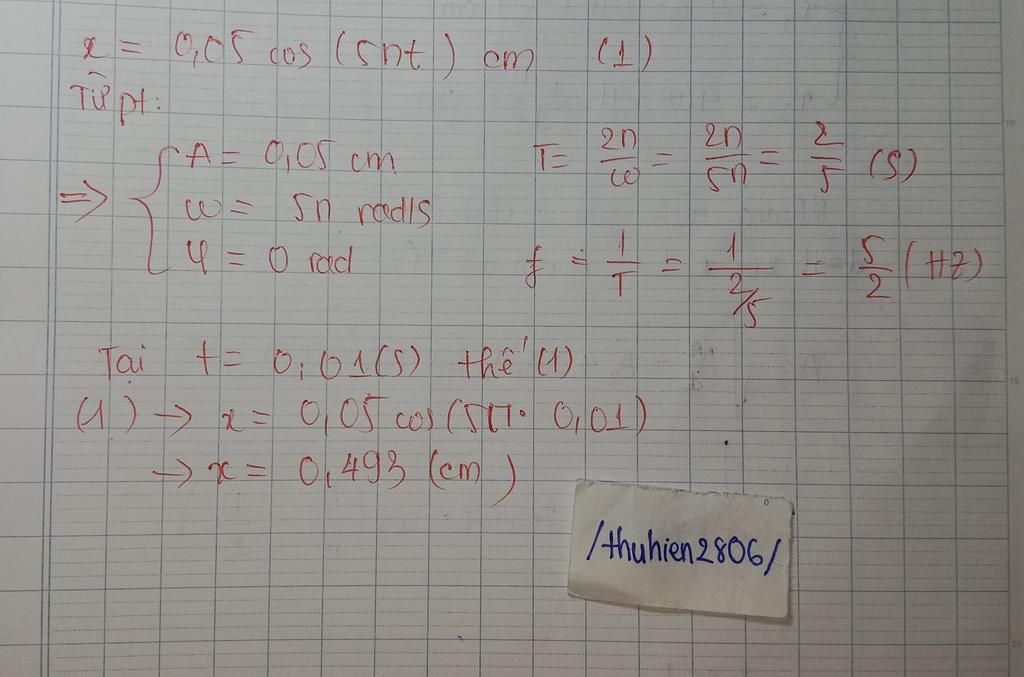 x = 0,05 cos (5πt) cm (1)
Từ pt:
⇒ { A = 0,05 cm
ω = 5π rad/s
φ = 0 rad
T = 2π/ω = 2π/5π = 2/5 (s)
f = 1/T = 1/(2/5) = 5/2 (Hz)
Tại t = 0,01(s) thế (1)
(1) → x = 0,05 cos (5π. 0,01)
→ x = 0,493 (cm)
/thuhien2806/